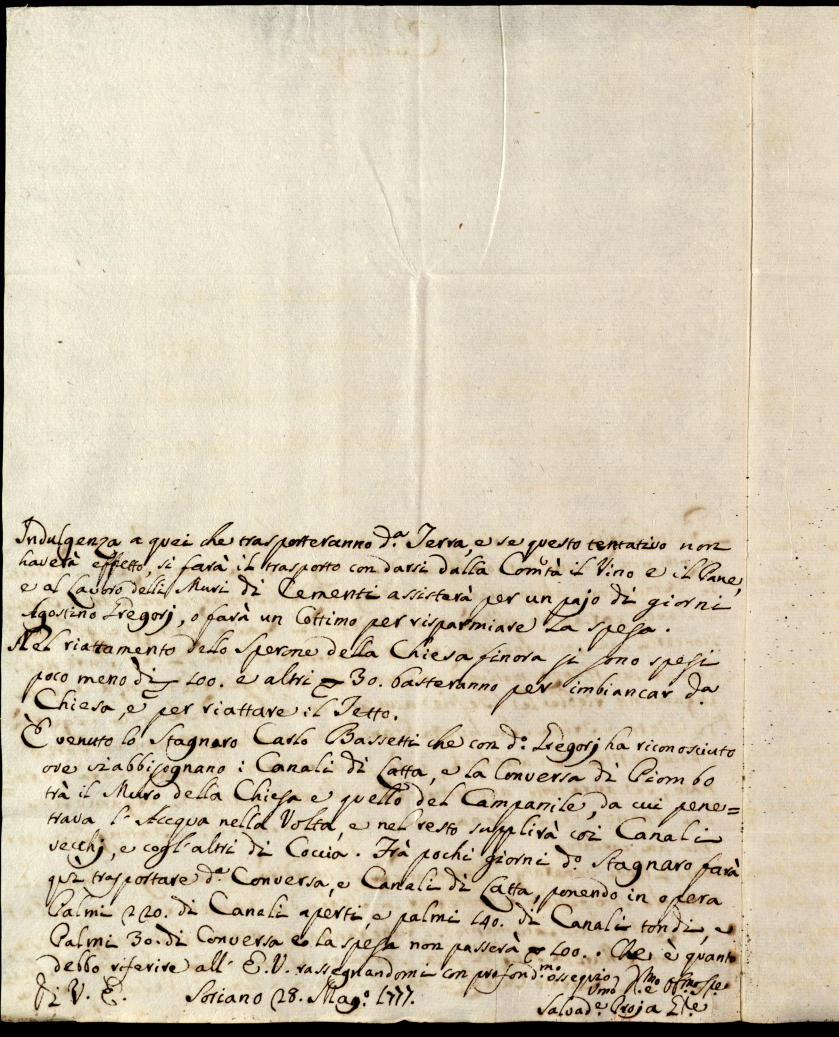 Indulgenza a quei che trasporteranno d.ª Terra, e se questo tentativo non
haverà effetto, si farà il trasporto con darsi dalla Com̃tà il Vino e il Pane,
e al Lavoro delli Muri di Cementi assisterà per un pajo di giorni
Agostino Gregorj, o farà un Cottimo per risparmiare la spesa.
Nel riattamento dello Sperone della Chiesa finora si sono spesi
poco meno di 100. e altri 30. basteranno per imbiancar d.ª
Chiesa, e per riattare il Tetto.
È venuto lo Stagnaro Carlo Bassetti che con d.º Gregorj ha riconosciuto
ove si abbisognano i Canali di Latta, e la Conversa di Piombo
trà il Muro della Chiesa e quello del Campanile, da cui pene=
trava l'Acqua nella Volta, e nel resto supplirà coi Canali
vecchj, e cogl'altri di Coccia. Frà pochi giorni d.º Stagnaro farà
quì trasportare d.ª Conversa, e Canali di Latta, ponendo in opera
Palmi 220. di Canali aperti, e palmi 140. di Canali tondi, e
Palmi 30. di Conversa e la spesa non passerà 100.. Che è quanto
debbo riferire all'E.V. rassegnandomi con profond.mo ossequio
Di V. E. Soriano 28. Mag.º 1777.
Salvad.e Troja